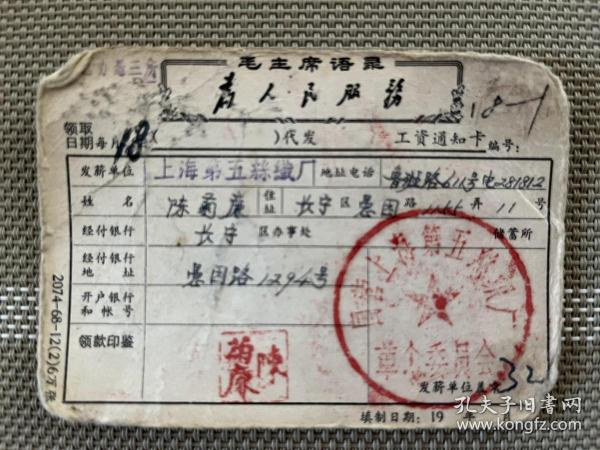 毛主席语录
为人民服务
18-1
领取
日期每月18(        )代发 工资通知卡 编号:
发薪单位 上海第五丝织厂 地址电话 鲁班路611号电281812
姓名 陈菊廉 住址 长宁区愚园路1166弄11号
经付银行 长宁区办事处 储蓄所
经付银行地址 愚园路1294号
开户银行和帐号
领款印鉴 陈菊廉
国营上海第五丝织厂
革命委员会
发薪单位盖章 32
填制日期: 19 年 月
2074-68-12(2)6万张
孔夫子旧书网
www.kongfz.com